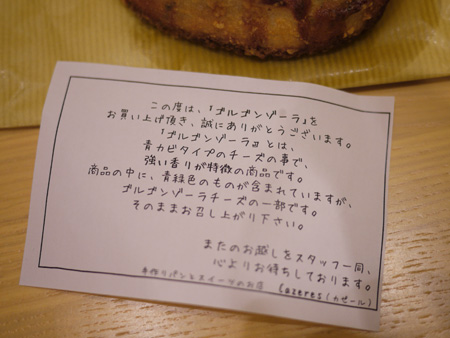 この度は、「ゴルゴンゾーラ」を
お買い上げ頂き、誠にありがとうございます。
「ゴルゴンゾーラ」とは、
青カビタイプのチーズの事で、
強い香りが特徴の商品です。
商品の中に、青緑色のものが含まれていますが、
ゴルゴンゾーラチーズの一部です。
そのままお召し上がり下さい。
またのお越しをスタッフ一同、
心よりお待ちしております。
手作りパンとスイーツのお店 Cazeres(カゼール)